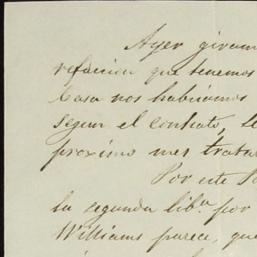 Ayer giram
refaccion que tenemos
Casa nos habiamos
segun el contrato, Le
proximo mes trata
Por este
la segunda lib.ª por
Williams parece, que